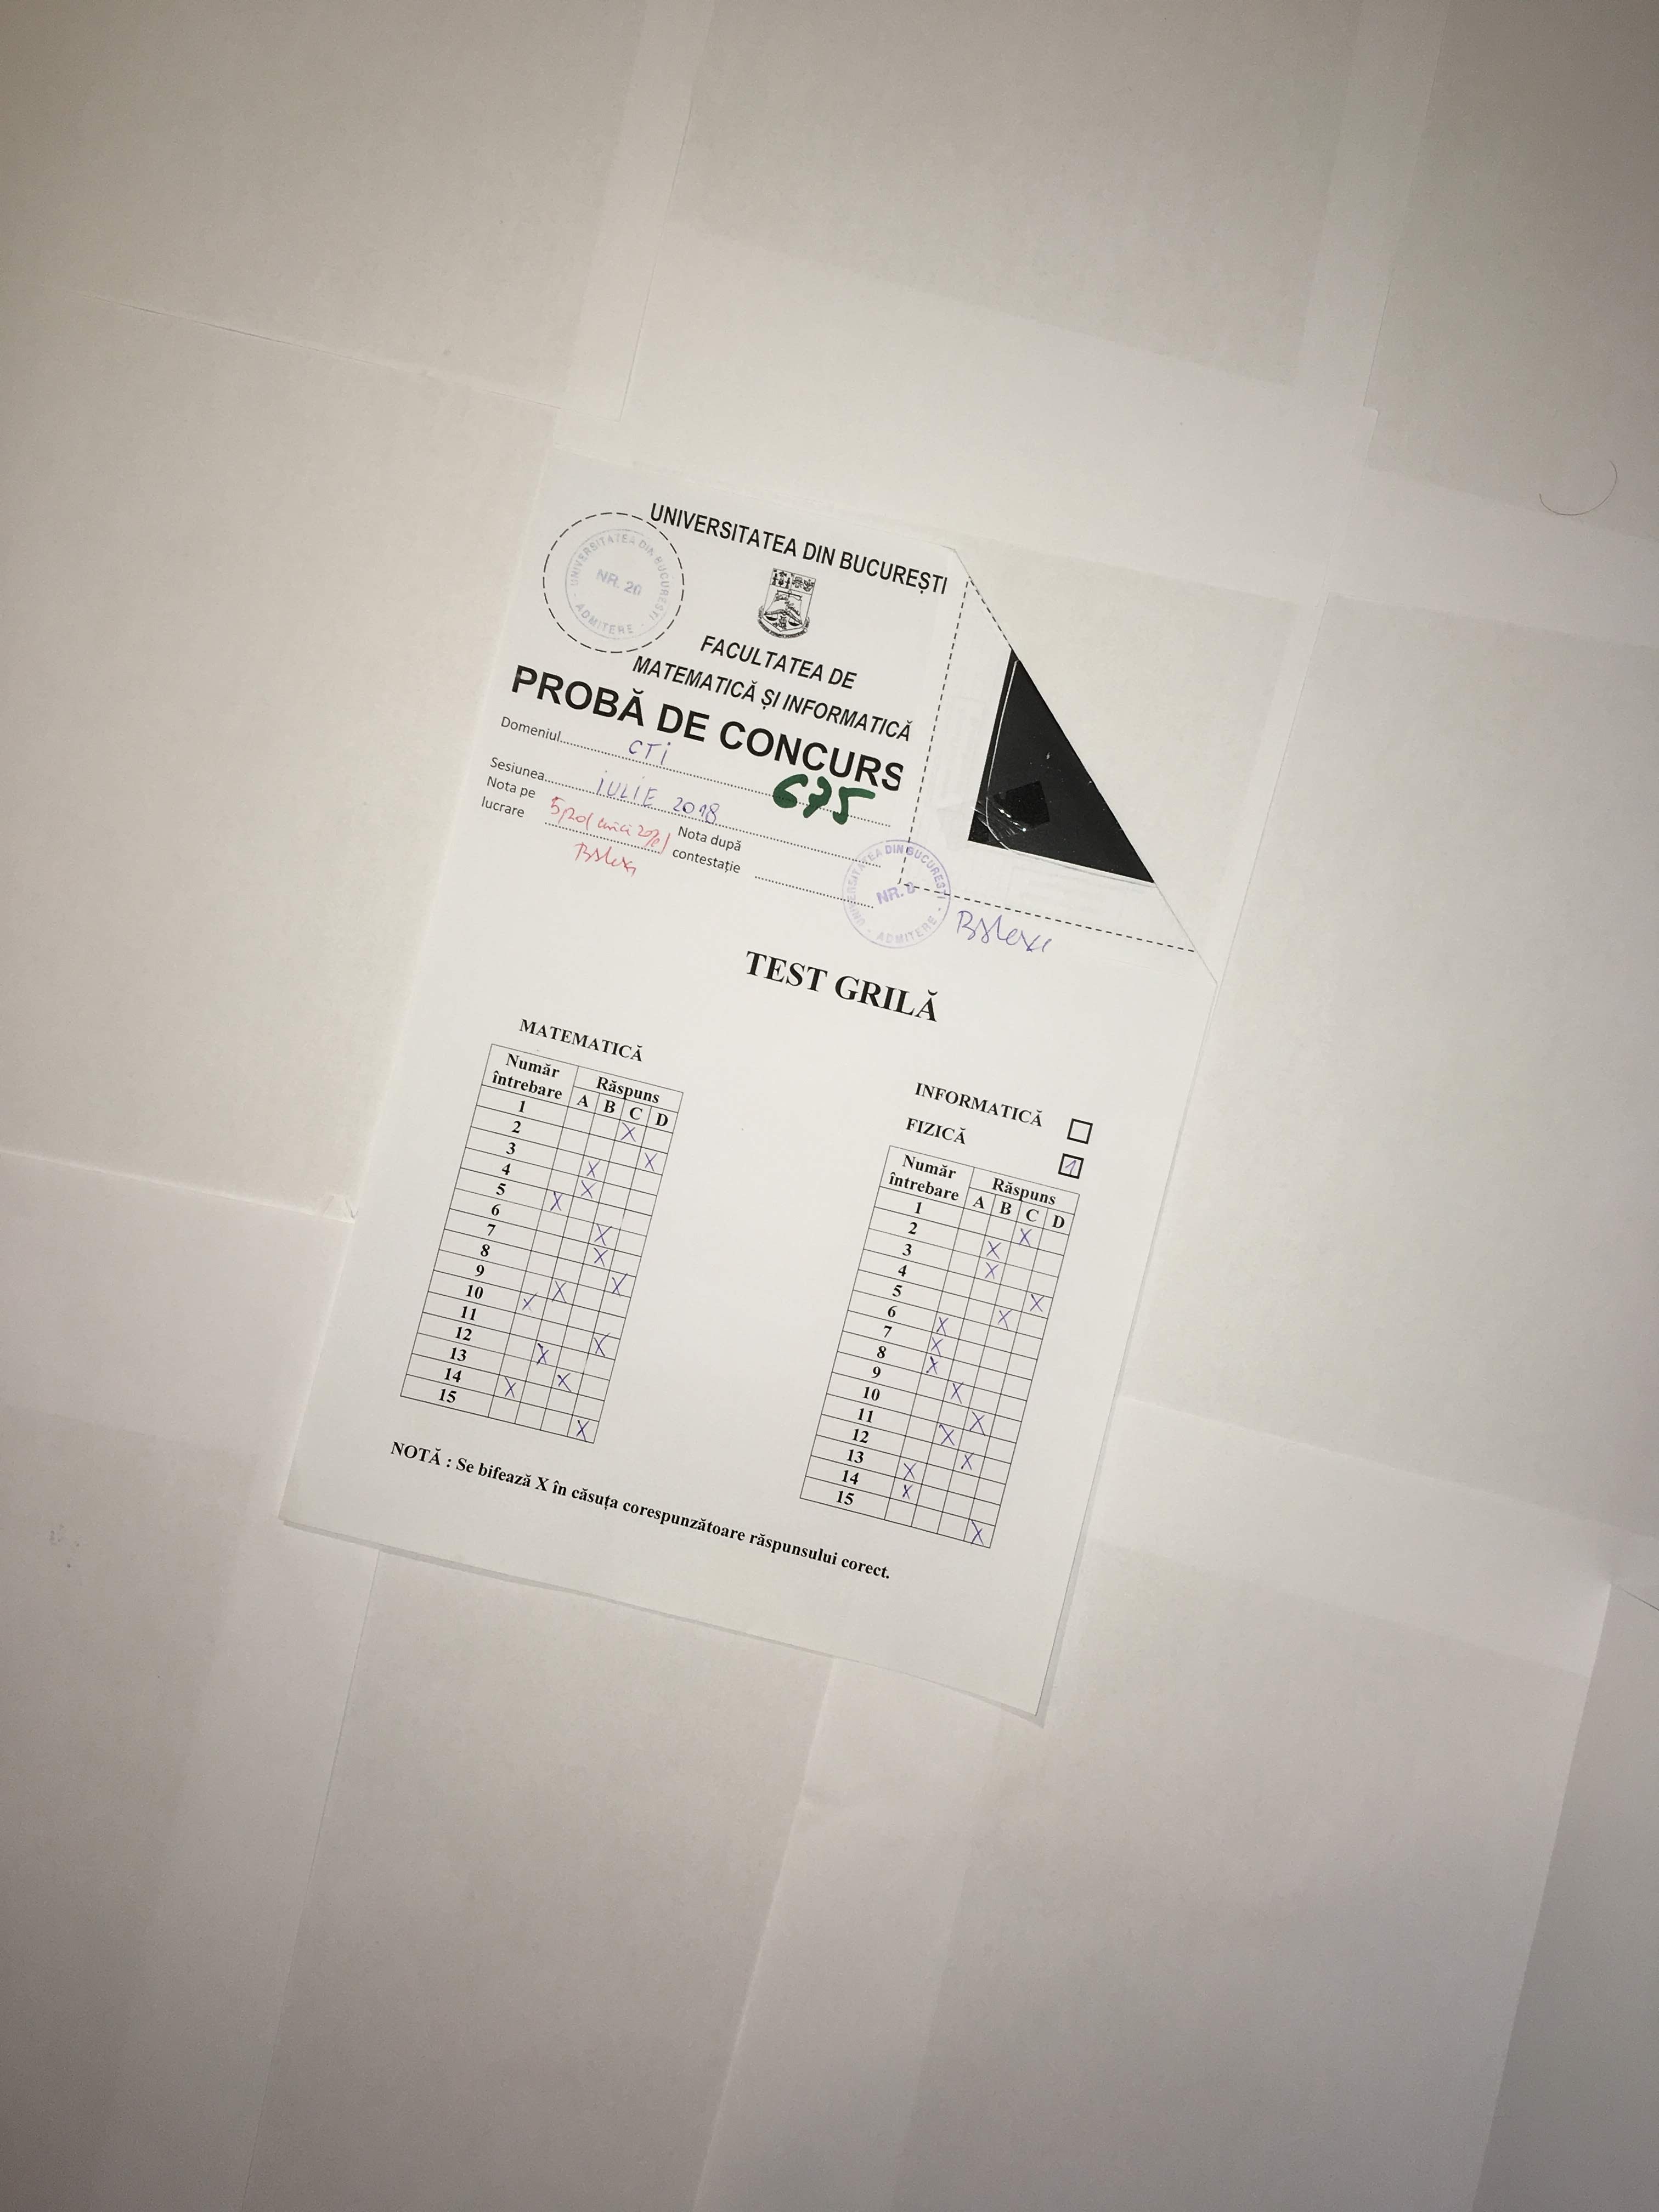 UNIVERSITATEA DIN BUCUREȘTI
UNIVERSITATEA DIN BUCUREȘTI
NR. 20
ADMITERE
FACULTATEA DE
MATEMATICĂ ȘI INFORMATICĂ
PROBĂ DE CONCURS
Domeniul CTI
675
Sesiunea IULIE 2018
Nota pe lucrare
Nota după contestație
UNIVERSITATEA DIN BUCUREȘTI
NR. 8
ADMITERE
TEST GRILĂ
MATEMATICĂ
Număr întrebare Răspuns
A B C D
1 X
2 X
3 X
4 X
5 X
6 X
7 X
8 X
9 X
10 X
11 X
12 X
13 X
14 X
15 X
INFORMATICĂ
FIZICĂ 1
Număr întrebare Răspuns
A B C D
1 X
2 X
3 X
4 X
5 X
6 X
7 X
8 X
9 X
10 X
11 X
12 X
13 X
14 X
15 X
NOTĂ : Se bifează X în căsuța corespunzătoare răspunsului corect.